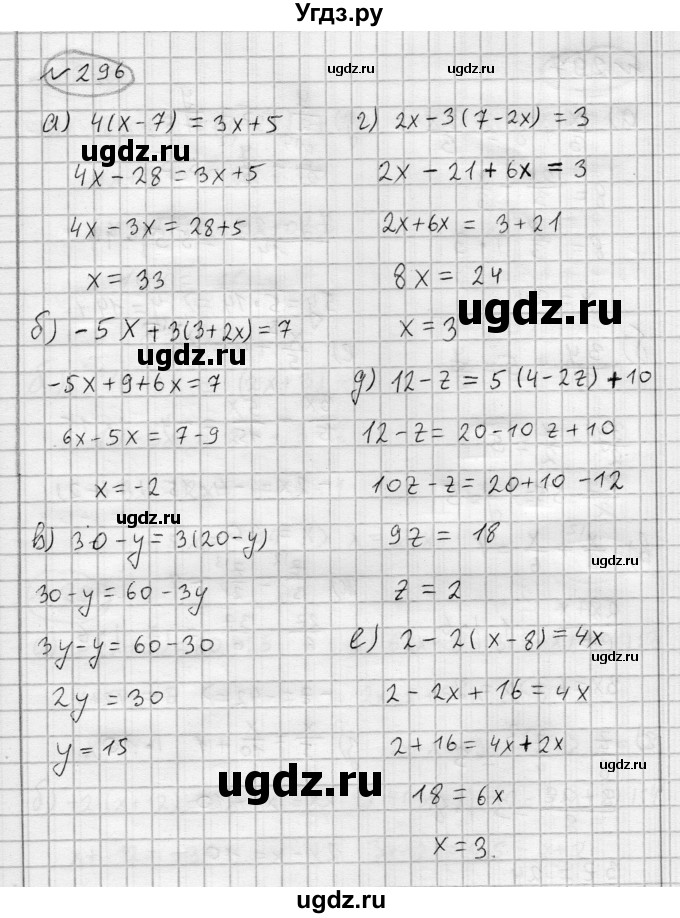 Угдз.ру
№ 296
а) 4(x-7) = 3x+5
4x - 28 = 3x+5
4x - 3x = 28+5
x = 33
б) -5x + 3(3+2x) = 7
-5x+9+6x=7
6x-5x = 7-9
x = -2
в) 30-y = 3(20-y)
30-y = 60-3y
3y-y = 60-30
2y = 30
y = 15
г) 2x-3(7-2x) = 3
2x - 21 + 6x = 3
2x+6x = 3+21
8x = 24
x = 3
д) 12-z = 5(4-2z)+10
12-z = 20-10z+10
10z-z = 20+10-12
9z = 18
z = 2
е) 2-2(x-8)=4x
2-2x+16=4x
2+16=4x+2x
18=6x
x=3.
ugdz.ru
ugdz.ru
ugdz.ru
ugdz.ru
ugdz.ru
ugdz.ru
ugdz.ru
ugdz.ru
ugdz.ru
ugdz.ru
ugdz.ru
ugdz.ru